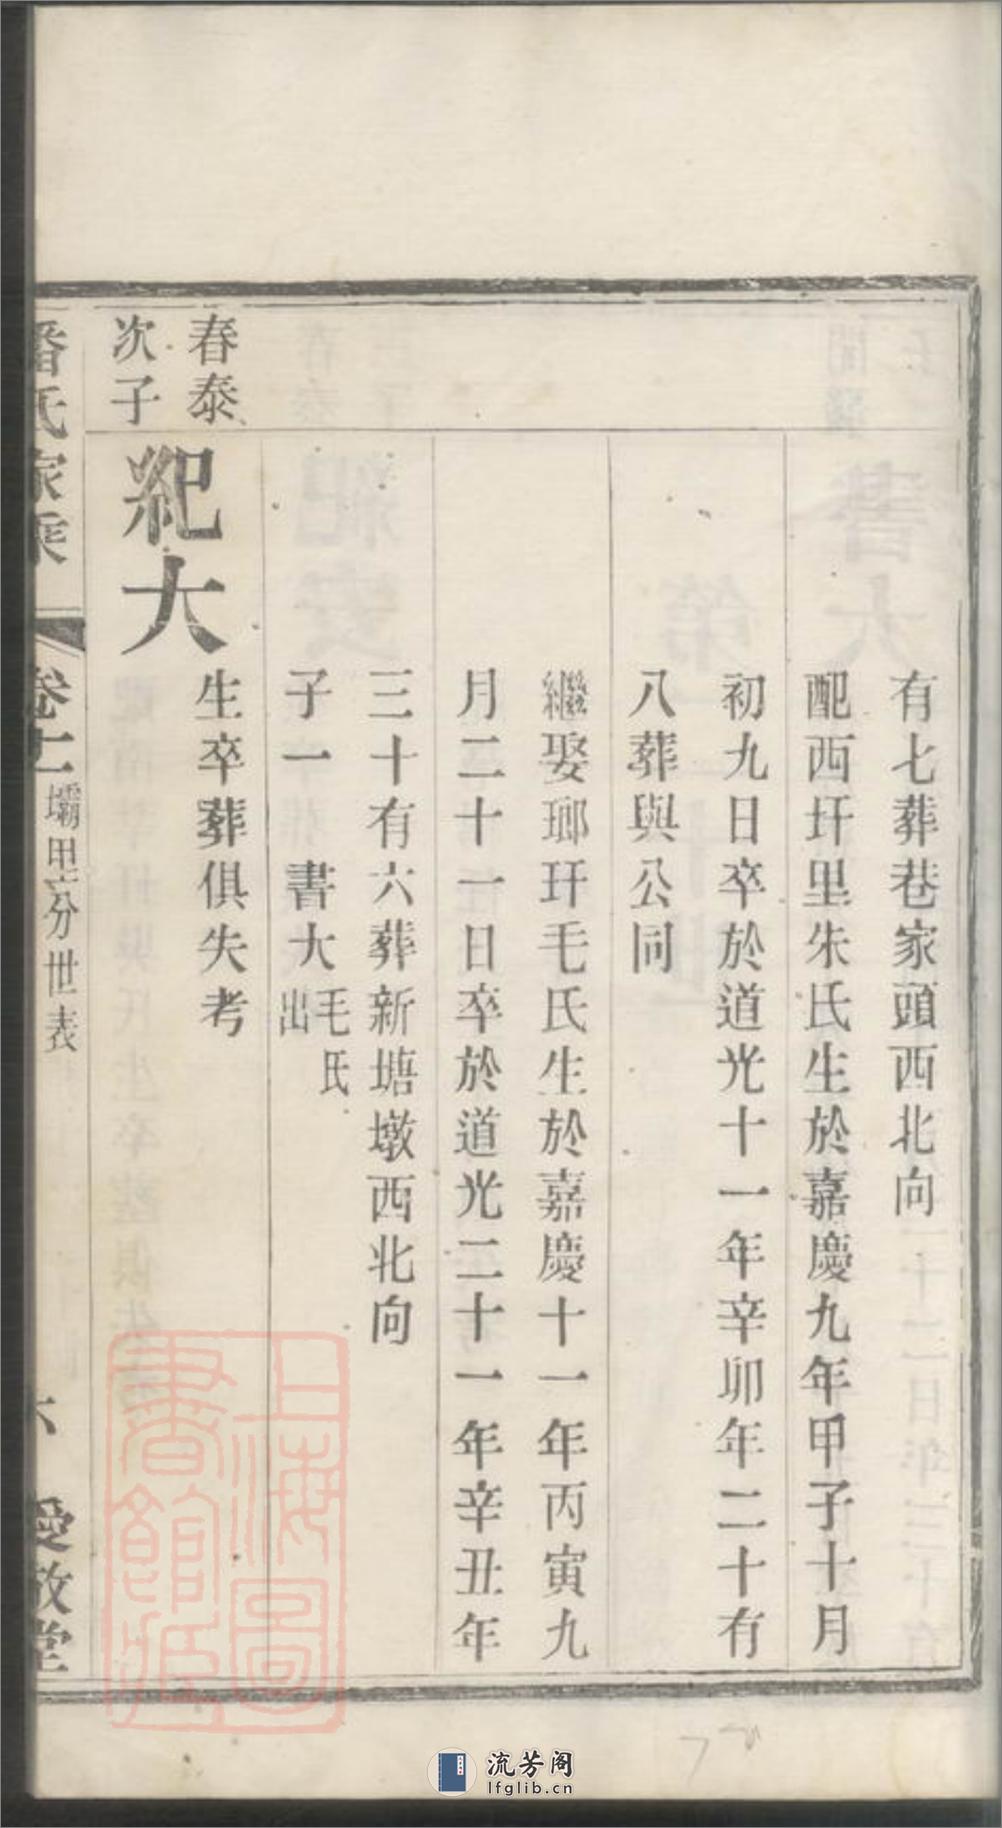 有七葬巷家頭西北向
配西圩里朱氏生於嘉慶九年甲子十月
初九日卒於道光十一年辛卯年二十有
八葬與公同
繼娶瑯玕毛氏生於嘉慶十一年丙寅九
月二十一日卒於道光二十一年辛丑年
三十有六葬新塘墩西北向
子一 書大 毛氏出
春泰
次子
紀大
生卒葬俱失考
潘氏家乘
壩里分世表
六
愛敬堂
上海圖
書館藏
流芳阁
lfglib.cn